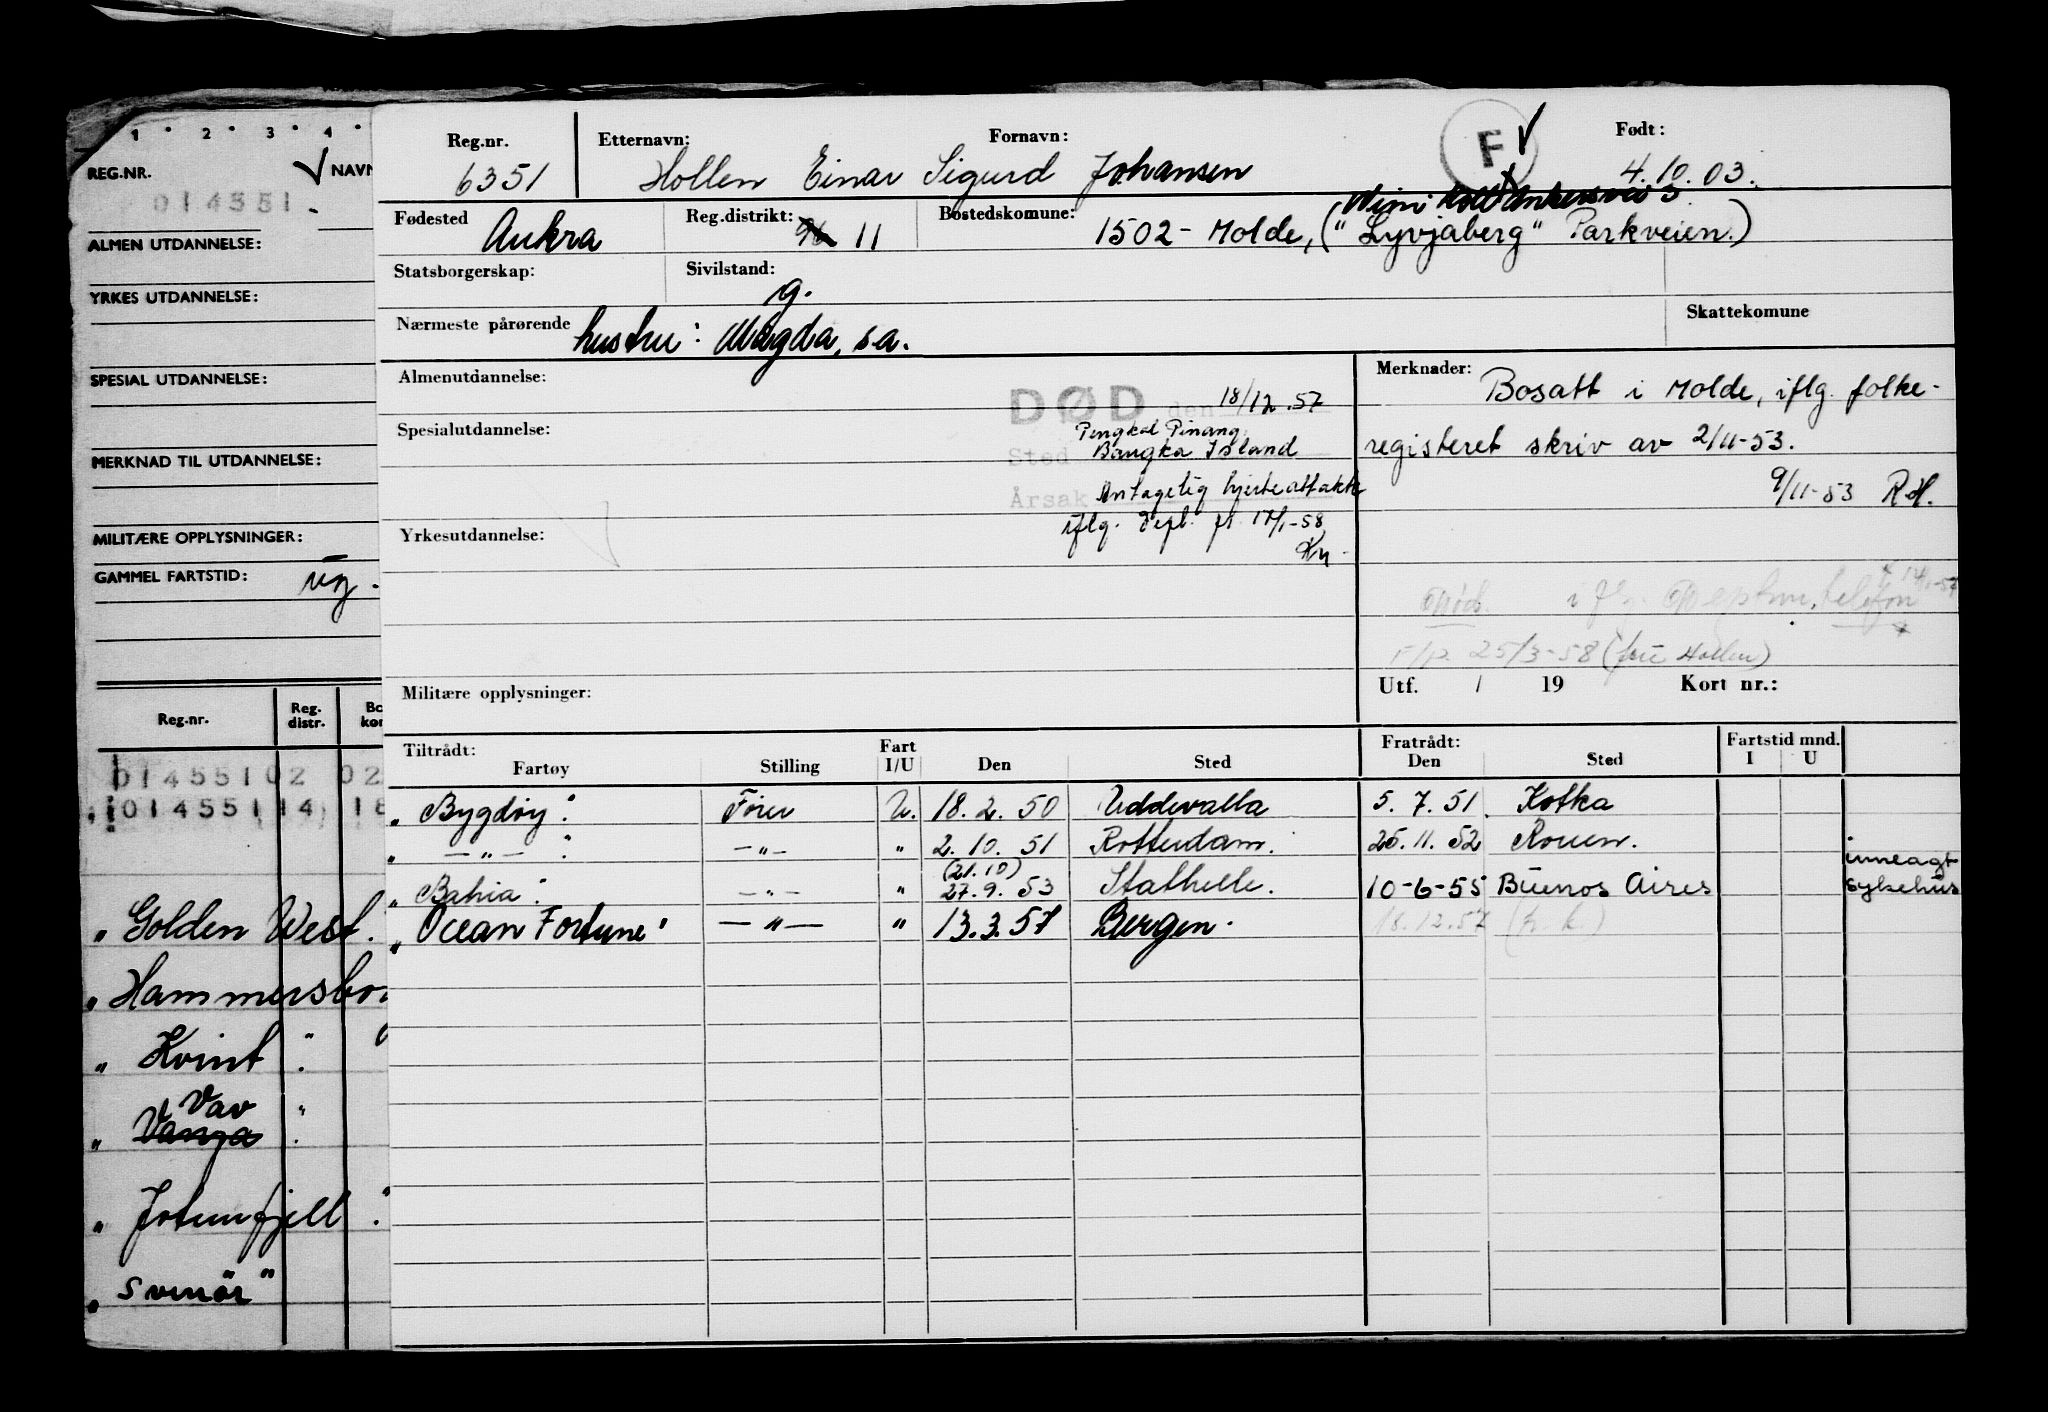 1 2 3 4
REG.NR.
NAVN
014551
ALMEN UTDANNELSE:
YRKES UTDANNELSE:
SPESIAL UTDANNELSE:
MERKNAD TIL UTDANNELSE:
MILITÆRE OPPLYSNINGER:
GAMMEL FARTSTID:
Reg.nr. Reg. distr.
01455102 02
01455114 18
"Golden West.
"Hammersbo
"Kvint".
Vav"
"Vanja.
"Jotunfjell".
"Svinör"
Reg.nr. Etternavn: Fornavn: F Født:
6351 Hollen Einar Sigurd Johansen 4.10.03.
Fødested Aukra Reg.distrikt: 11 Bostedskomune: 1502 - Molde, ("Lyvjaberg" Parkveien.)
Statsborgerskap: Sivilstand: g.
Nærmeste pårørende hustru: Magda, s.a. Skattekomune
Almenutdannelse:
DØD den 18/12.57
Spesialutdannelse:
Sted Pengkal Pinang, Bangka Island
Årsak Antagelig hjerteattakk
iflg. Dept. fl. 17/1-58
Yrkesutdannelse:
Militære opplysninger:
Merknader: Bosatt i Molde, iflg. folke-
registeret skriv av 2/11-53.
9/11-53 R.H.
Død. iflg. telefon
25/3-58 (fru Hollen)
Utf. / 19 Kort nr.:
Tiltrådt: Fartøy Stilling Fart I/U Den Sted Fratrådt: Den Sted Fartstid mnd. I U
"Bygdøy" Fører U. 18.2.50 Uddevalla 5.7.51. Kotka
" —"— " —"— " 2.10.51 Rotterdam. 25.11.52 Rouen.
(21.10)
"Bahia" —"— " 27.9.53 Stathelle. 10-6-55 Buenos Aires innlagt sykehus
"Ocean Fortune" —"— " 13.3.57 Bergen. 18.12.57